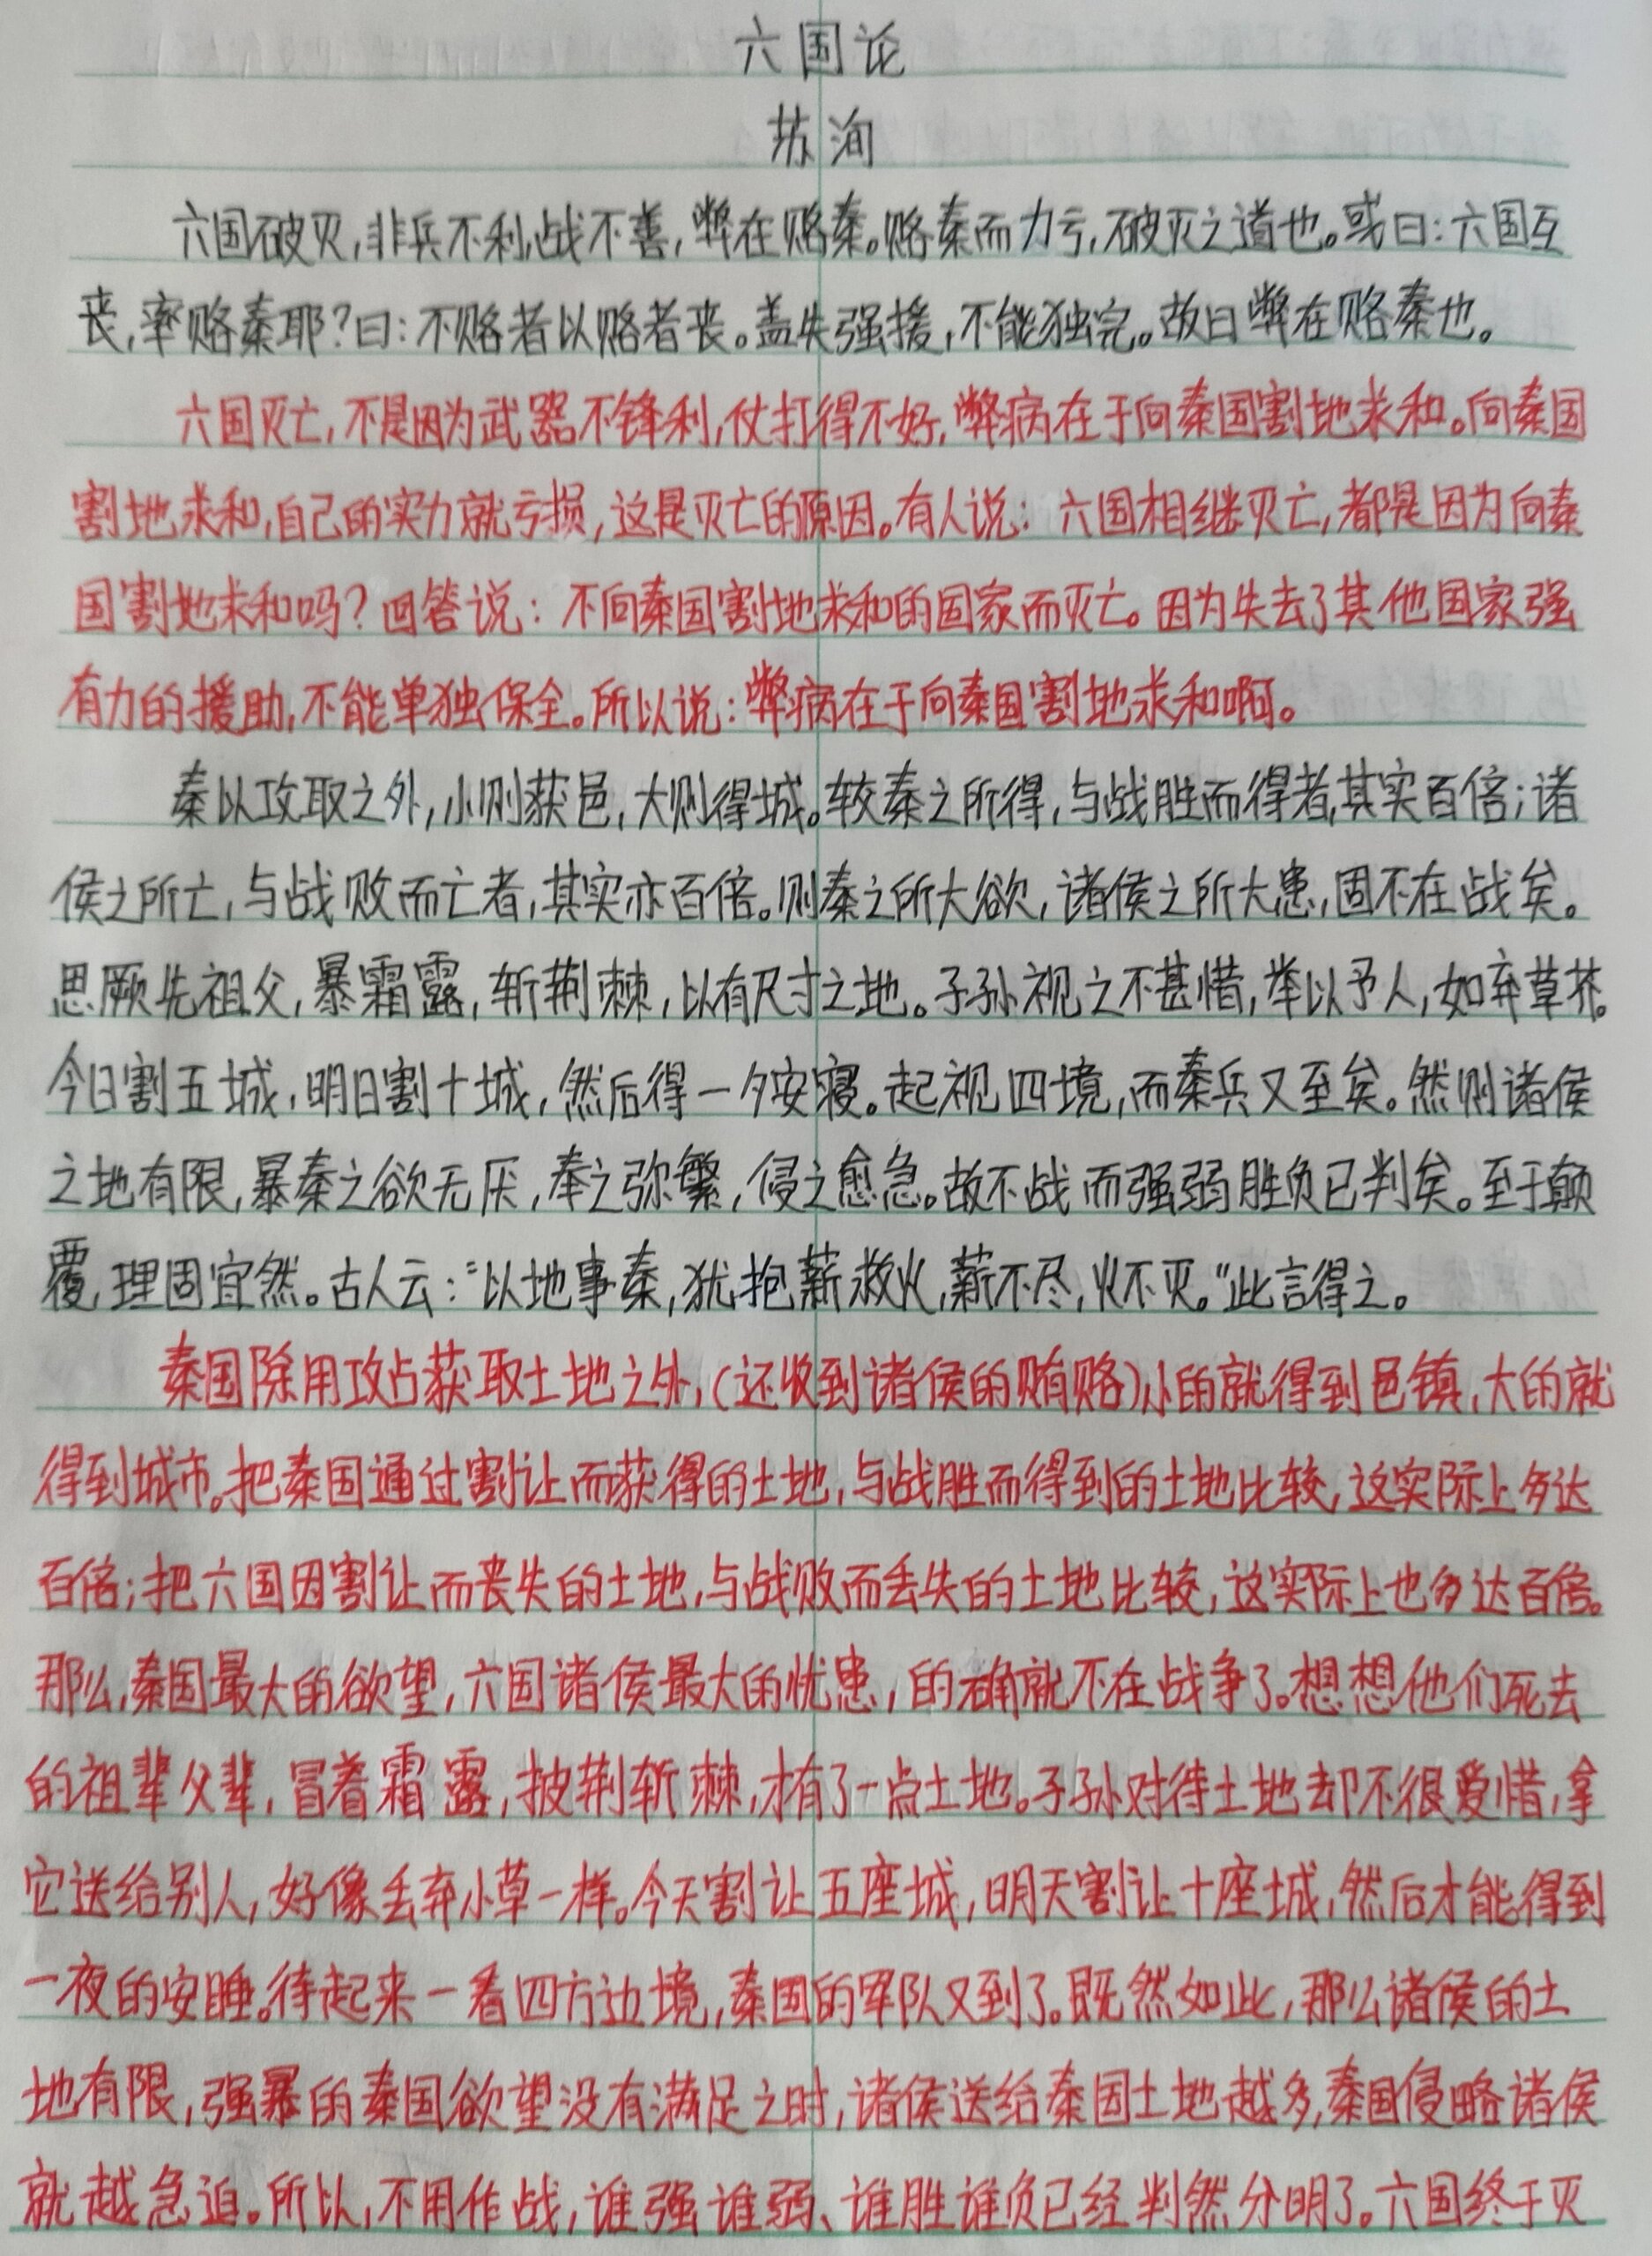 六国论
苏洵
六国破灭,非兵不利,战不善,弊在赂秦。赂秦而力亏,破灭之道也。或曰:六国互
丧,率赂秦耶?曰:不赂者以赂者丧。盖失强援,不能独完。故曰弊在赂秦也。
六国灭亡,不是因为武器不锋利,仗打得不好,弊病在于向秦国割地求和。向秦国
割地求和,自己的实力就亏损,这是灭亡的原因。有人说:六国相继灭亡,都是因为向秦
国割地求和吗?回答说:不向秦国割地求和的国家而灭亡。因为失去了其他国家强
有力的援助,不能单独保全。所以说:弊病在于向秦国割地求和啊。
秦以攻取之外,小则获邑,大则得城。较秦之所得,与战胜而得者,其实百倍;诸
侯之所亡,与战败而亡者,其实亦百倍。则秦之所大欲,诸侯之所大患,固不在战矣。
思厥先祖父,暴霜露,斩荆棘,以有尺寸之地。子孙视之不甚惜,举以予人,如弃草芥。
今日割五城,明日割十城,然后得一夕安寝。起视四境,而秦兵又至矣。然则诸侯
之地有限,暴秦之欲无厌,奉之弥繁,侵之愈急。故不战而强弱胜负已判矣。至于颠
覆,理固宜然。古人云:“以地事秦,犹抱薪救火,薪不尽,火不灭。”此言得之。
秦国除用攻占获取土地之外,(还收到诸侯的贿赂)小的就得到邑镇,大的就
得到城市。把秦国通过割让而获得的土地,与战胜而得到的土地比较,这实际上多达
百倍;把六国因割让而丧失的土地,与战败而丢失的土地比较,这实际上也多达百倍。
那么,秦国最大的欲望,六国诸侯最大的忧患,的确就不在战争了。想想他们死去
的祖辈父辈,冒着霜露,披荆斩棘,才有了一点土地。子孙对待土地却不很爱惜,拿
它送给别人,好像丢弃小草一样。今天割让五座城,明天割让十座城,然后才能得到
一夜的安睡。待起来一看四方边境,秦国的军队又到了。既然如此,那么诸侯的土
地有限,强暴的秦国欲望没有满足之时,诸侯送给秦国土地越多,秦国侵略诸侯
就越急迫。所以,不用作战,谁强谁弱、谁胜谁负已经判然分明了。六国终于灭